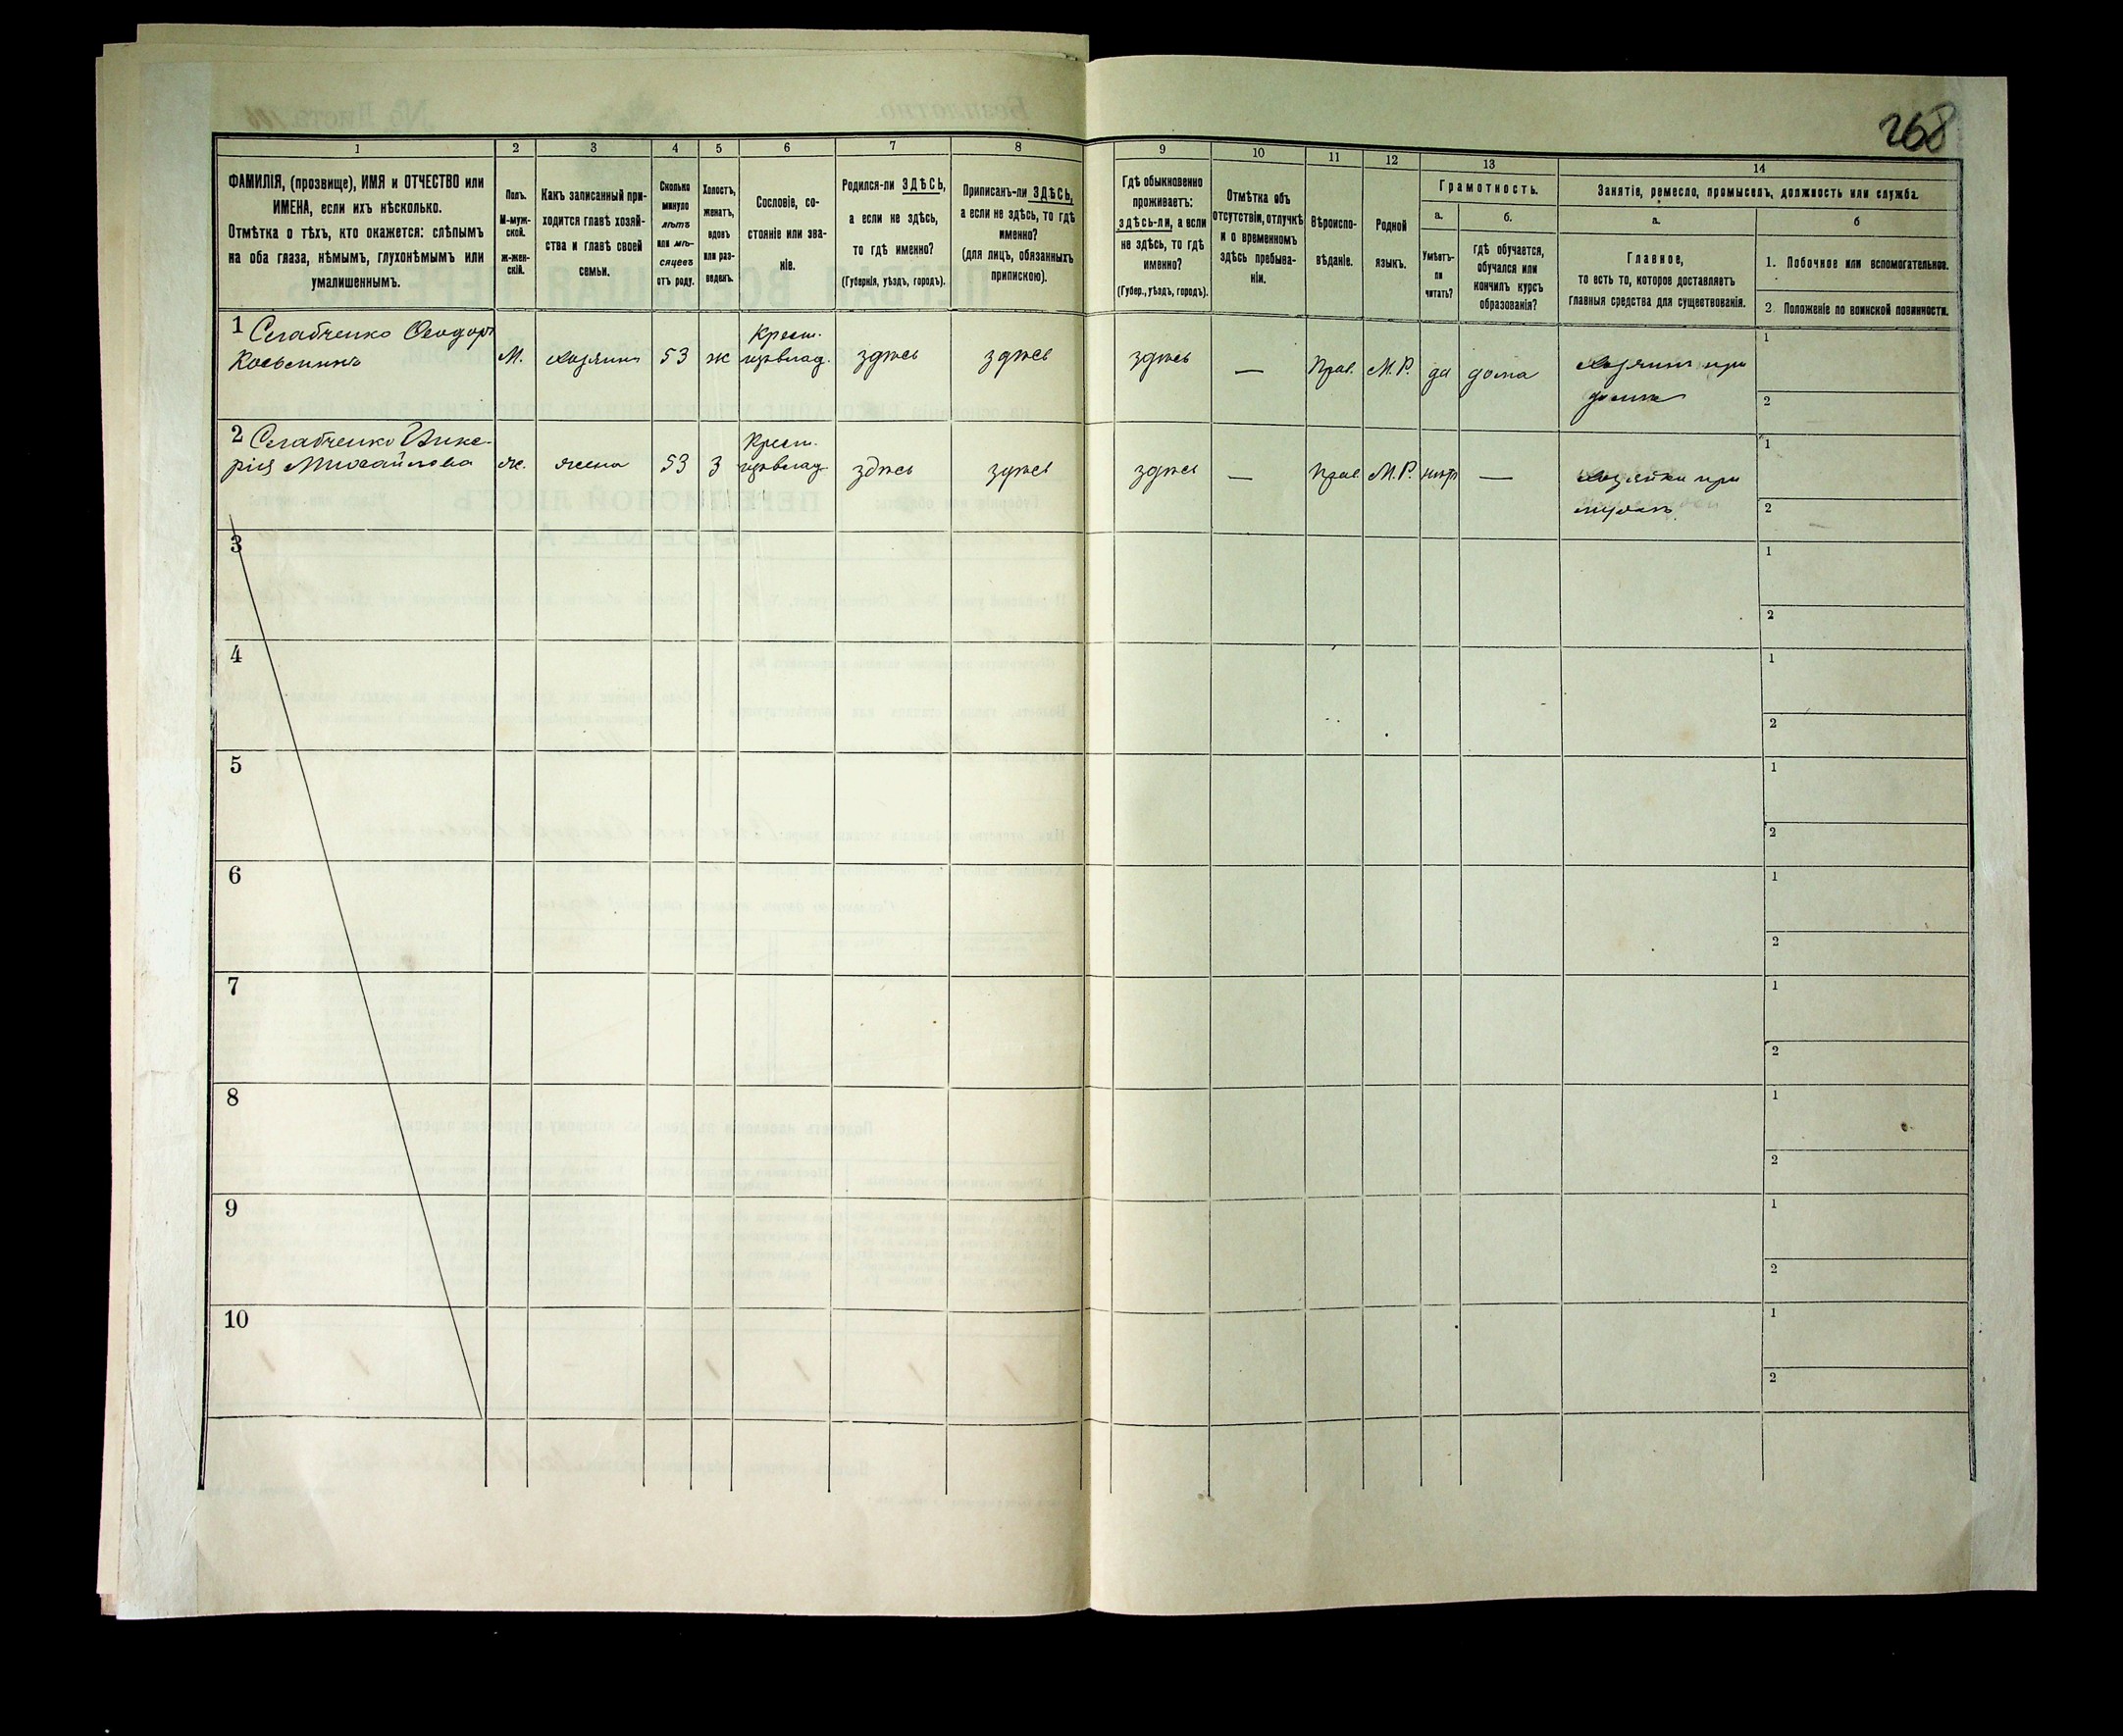 268
1 2 3 4 5 6 7 8 9 10 11 12 13 14
ФАМИЛІЯ, (прозвище), ИМЯ и ОТЧЕСТВО или
ИМЕНА, если ихъ нѣсколько.
Отмѣтка о тѣхъ, кто окажется: слѣпымъ
на оба глаза, нѣмымъ, глухонѣмымъ или
умалишеннымъ.
Полъ.
М-муж-
ской.
ж-жен-
скій.
Какъ записанный при-
ходится главѣ хозяй-
ства и главѣ своей
семьи.
Сколько
минуло
лѣтъ
или мѣ-
сяцевъ
отъ роду.
Холостъ,
женатъ,
вдовъ
или раз-
веденъ.
Сословіе, со-
стояніе или зва-
ніе.
Родился-ли ЗДѢСЬ,
а если не здѣсь,
то гдѣ именно?
(Губернія, уѣздъ, городъ).
Приписанъ-ли ЗДѢСЬ,
а если не здѣсь, то гдѣ
именно?
(для лицъ, обязанныхъ
припискою).
Гдѣ обыкновенно
проживаетъ:
здѣсь-ли, а если
не здѣсь, то гдѣ
именно?
(Губер., уѣздъ, городъ).
Отмѣтка объ
отсутствіи, отлучкѣ
и о временномъ
здѣсь пребыва-
ніи.
Вѣроиспо-
вѣданіе.
Родной
языкъ.
Грамотность.
а.
Умѣетъ-
ли
читать?
б.
гдѣ обучается,
обучался или
кончилъ курсъ
образованія?
Занятіе, ремесло, промыселъ, должность или служба.
а.
Главное,
то есть то, которое доставляетъ
главныя средства для существованія.
б
1. Побочное или вспомогательное.
2. Положеніе по воинской повинности.
1 Слабченко Ѳеодоръ
Косьминъ
М.
хозяинъ
53
ж
Крест.
здѣсь
здѣсь
здѣсь
—
Прав.
М. Р.
да
дома
Хозяинъ при
1
2
2 Слабченко Глике-
рія Михайлова
ж.
жена
53
З
Крест.
здѣсь
здѣсь
здѣсь
—
Прав.
М. Р.
нѣтъ
—
Хозяйка при
мужѣ
1
2
3
1
2
4
1
2
5
1
2
6
1
2
7
1
2
8
1
2
9
1
2
10
1
2